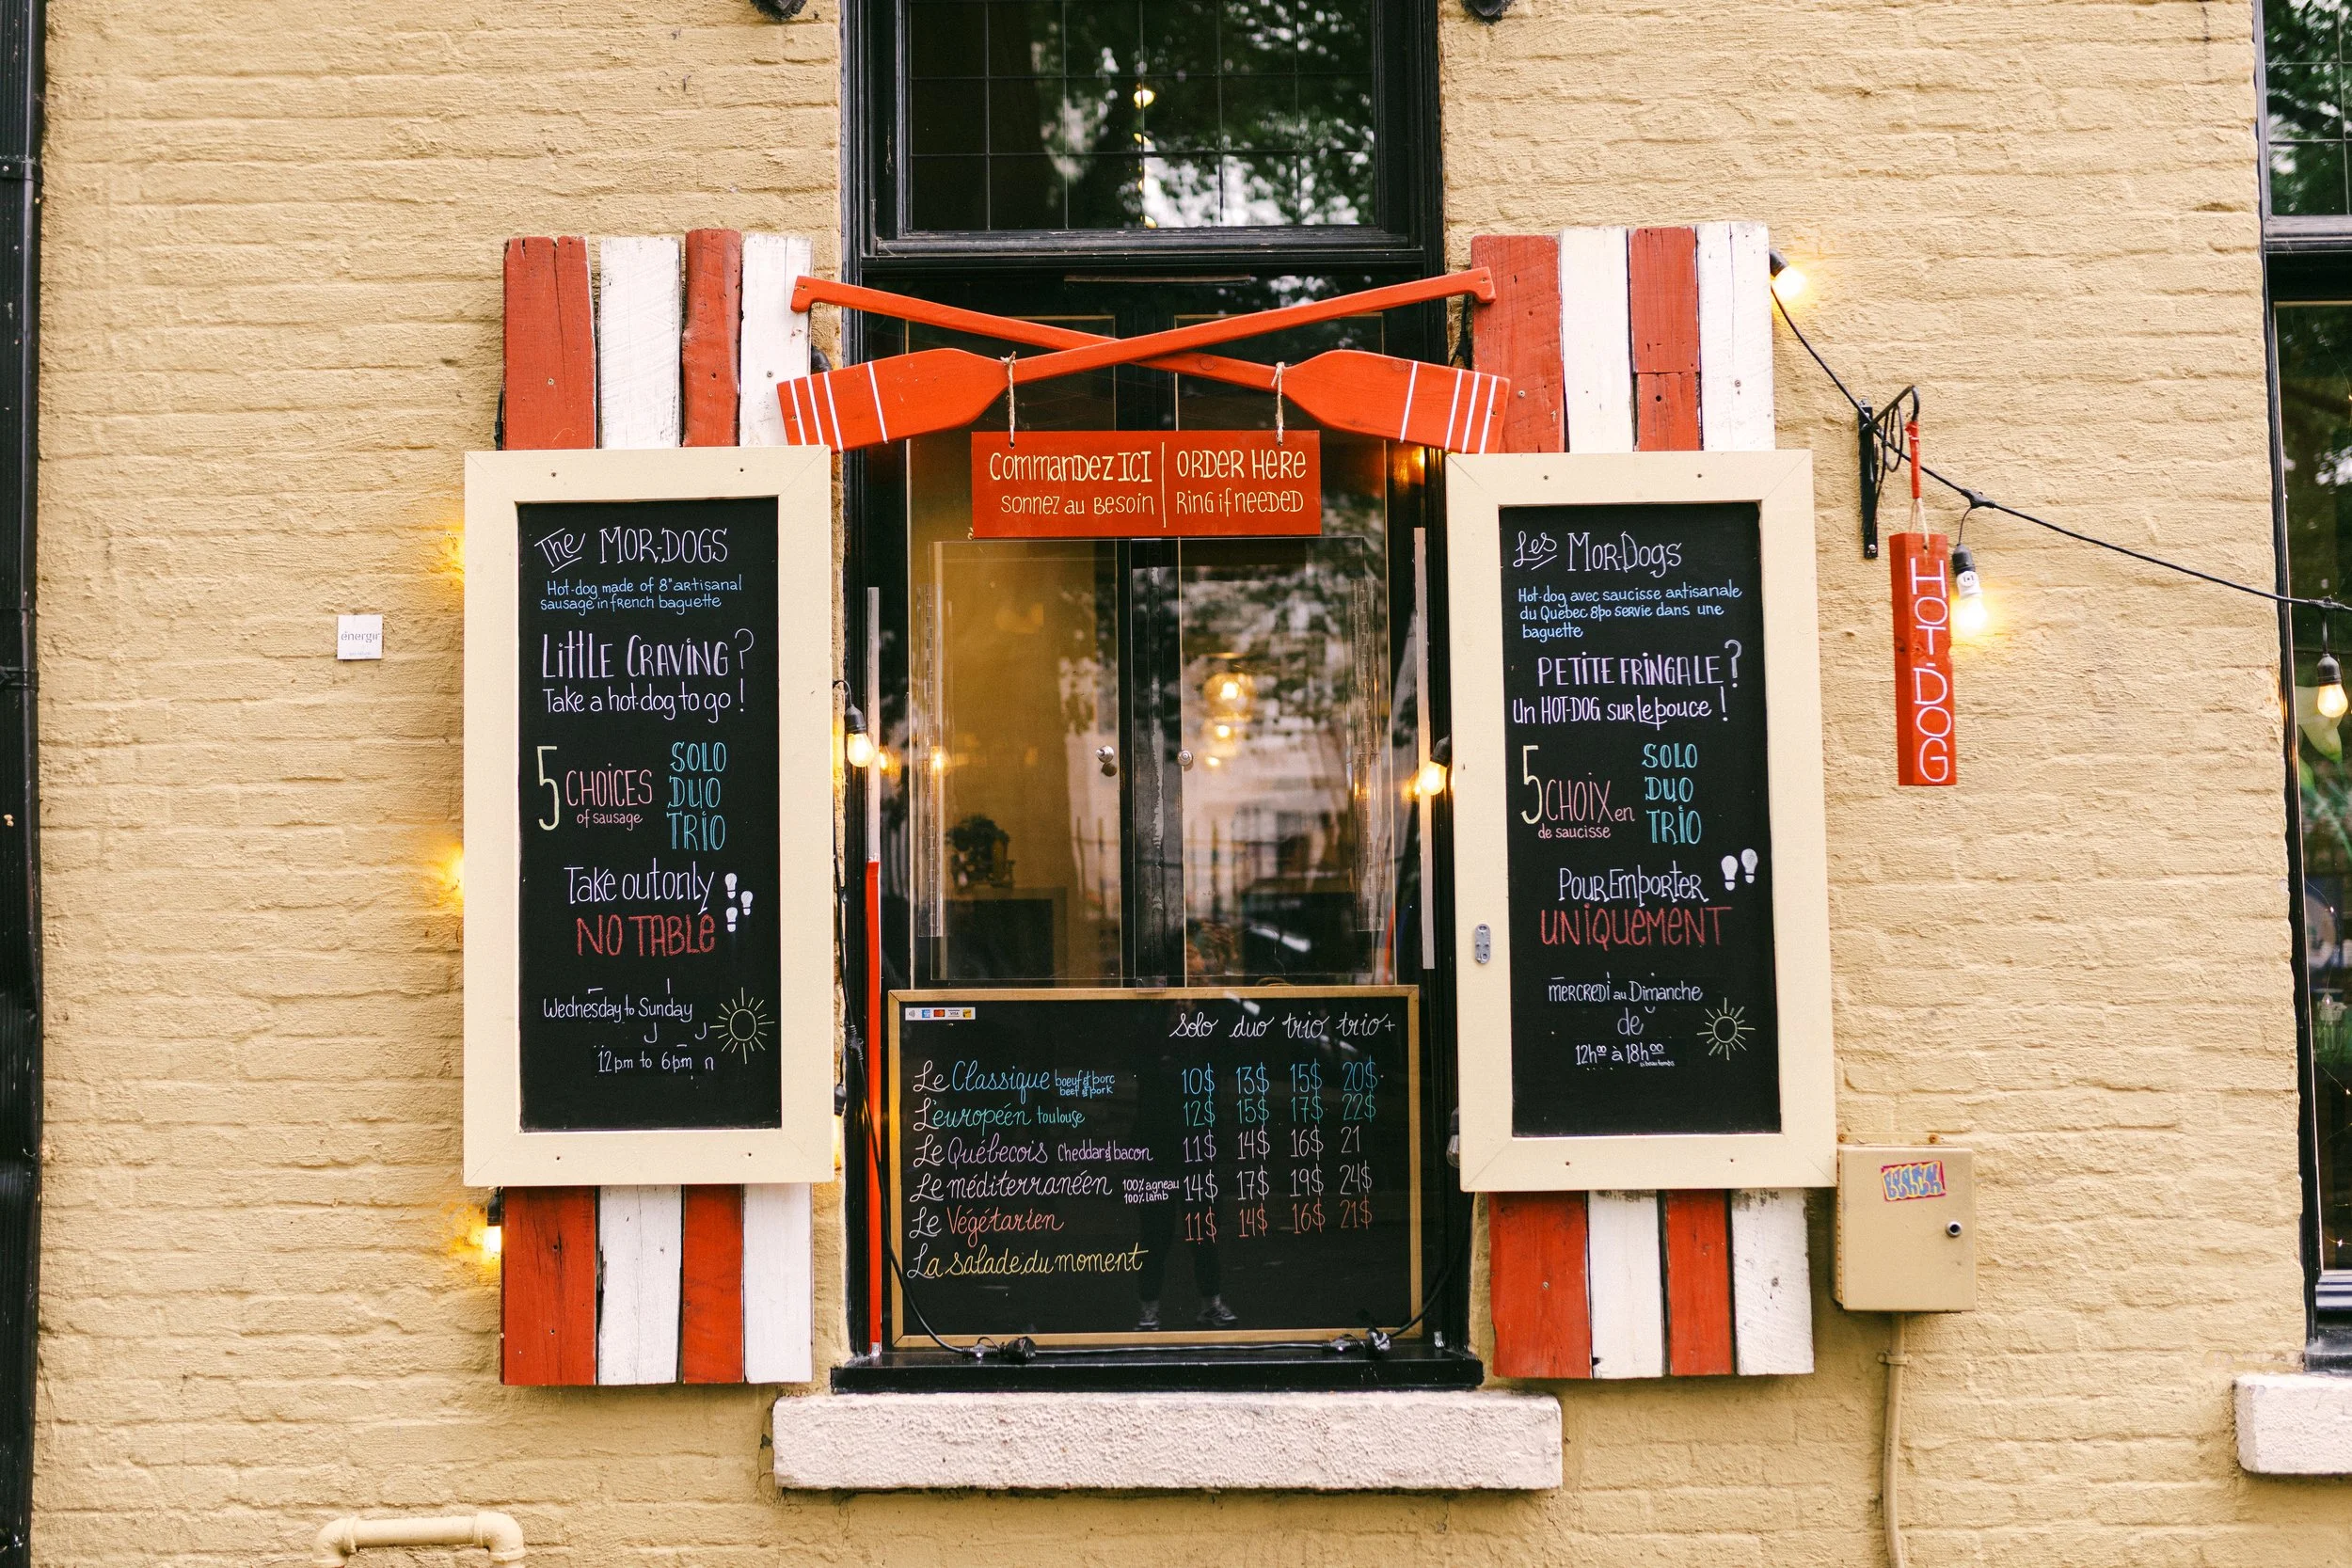 The MOR-DOGS
Hot-dog made of 8" artisanal
sausage in french baguette
LittLE CRAViNG ?
Take a hot-dog to go !
5 CHOiCES
of sausage
SOLO
DUO
TRiO
Take out only
NO TABLE
Wednesday to Sunday
12pm to 6pm
énergir
CommanDEZ ICI
Sonnez au Besoin
ORDER HERE
RiNG if NEEDED
Solo duo trio trio+
Le Classique boeuf & porc
beef & pork
10$ 13$ 15$ 20$
L'européén toulouse 12$ 15$ 17$ 22$
Le Québecois Cheddar & bacon 11$ 14$ 16$ 21
Le méditerranéén 100% agneau
100% lamb
14$ 17$ 19$ 24$
Le Végétarien 11$ 14$ 16$ 21$
La salade du moment
Les Mor-Dogs
Hot-dog avec saucisse artisanale
du Québec 8po servie dans une
baguette
PETiTE FRiNGALE ?
Un HOT-DOG sur le pouce !
5 CHOiX en
de saucisse
SOLO
DUO
TRiO
POUR EmpORTER
UNiQUEMENT
mERCREDi au Dimanche
de
12h00 à 18h00
HOT-DOG